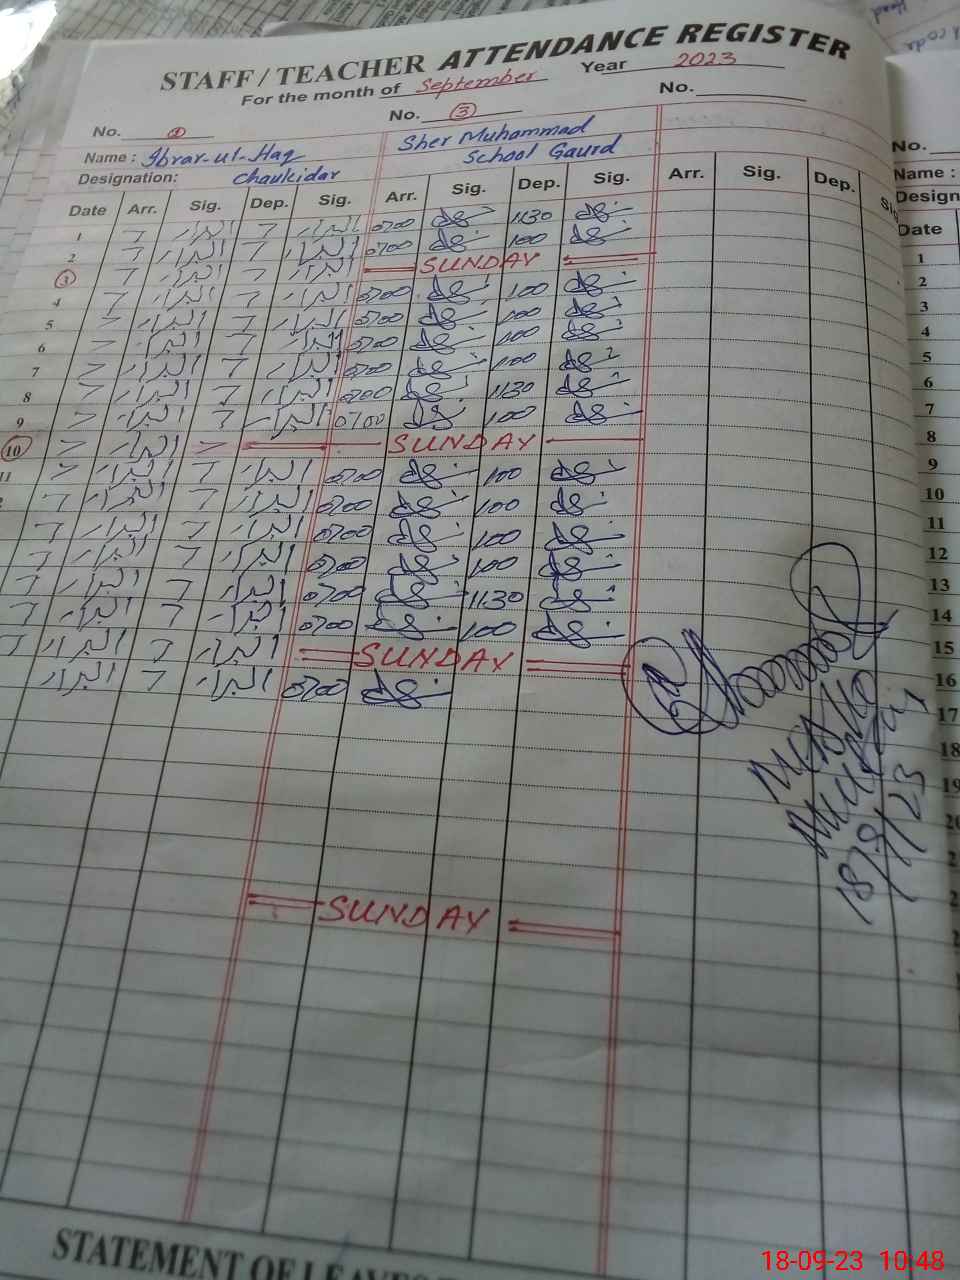 STAFF / TEACHER ATTENDANCE REGISTER
For the month of September Year 2023
No. ③ No.
No.
Name : Ibrar-ul-Haq Sher Muhammad
Designation: Chaukidar School Gaurd
Date Arr. Sig. Dep. Sig. Arr. Sig. Dep. Sig. Arr. Sig. Dep. Sig.
1 7 ابرار 7 ابرار 0700 1130
2 7 ابرار 7 ابرار 0700 100
③ 7 ابرار 7 ابرار SUNDAY
4 7 ابرار 7 ابرار 0700 100
5 7 ابرار 7 ابرار 0700 100
6 7 ابرار 7 ابرار 0700 100
7 7 ابرار 7 ابرار 0700 100
8 7 ابرار 7 ابرار 0700 1130
9 7 ابرار 7 ابرار 0700 100
⑩ 7 ابرار 7 SUNDAY
11 7 ابرار 7 ابرار 0700 100
7 ابرار 7 ابرار 0700 100
7 ابرار 7 ابرار 0700 100
7 ابرار 7 ابرار 0700 100
7 ابرار 7 ابرار 0700 1130
7 ابرار 7 ابرار 0700 100
7 ابرار 7 ابرار SUNDAY
ابرار 7 ابرار 0700
SUNDAY
18/9/23
STATEMENT OF LEAVES
No.
Name :
Design
Date
1
2
3
4
5
6
7
8
9
10
11
12
13
14
15
16
17
18
19
18-09-23 10:48